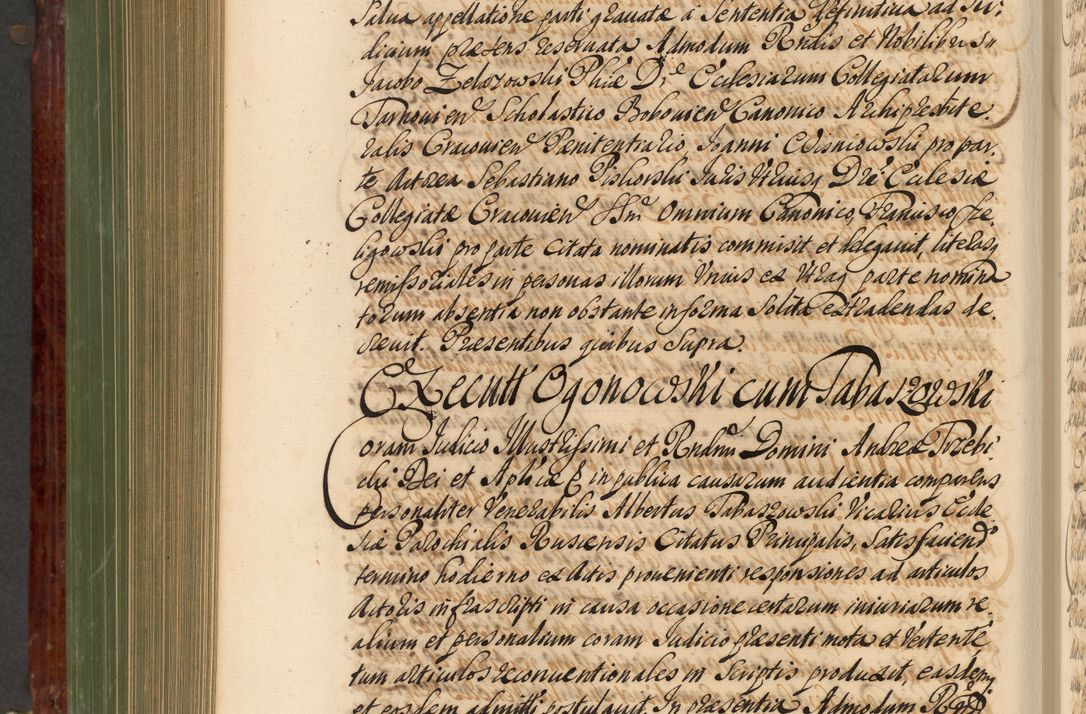 Salua appellatione parti grauatæ a Sententia Definitiua ad Iu,
dicium præsens reseruata Admodum Rndis et Nobilibus
Jacobo Zeborowski Phiæ Dre Ecclesiarum Collegiatarum
Tarnouien Scholastico Bobouien Canonico Archipresbite,
ralis Cracouien Pænitentiario Ioanni Wisniowski pro par,
te Actorea Sebastiano Piskorski Iuris Vtriusq Dre Ecclesiæ
Collegiatæ Cracouien SSm Omnium Canonico, Francisco
ligowski pro parte Citata nominatis commisit et delegauit, literasq
remissoriales in personas illorum Vnius ex Vtraq parte nomina
torum absentia non obstante in forma Solita extradendas de,
creuit. Præsentibus quibus Supra.
Ogonowski cum Tabaszowski
Coram Iudicio Illustrissimi et Rndmi Domini Andreæ Trzebi,
cki Dei et Aplicæ in publica causarum audientia comparens
personaliter Venerabilis Albertus Tabaszowski Vicarius Eccle
siæ Parochialis Rusiensis Citatus Principalis, Satisfaciend
termino hodierno ex Actis prouenienti responsiones ad articulos
Actoris infrascripti in causa occasione certarum iniuriarum re,
alium et personalium coram Iudicio præsenti mota et Vertente
tum articulos reconuentionales in Scriptis produxit, easdemq
et eosdem admitti postulauit. In præsentia Admodum Rnd